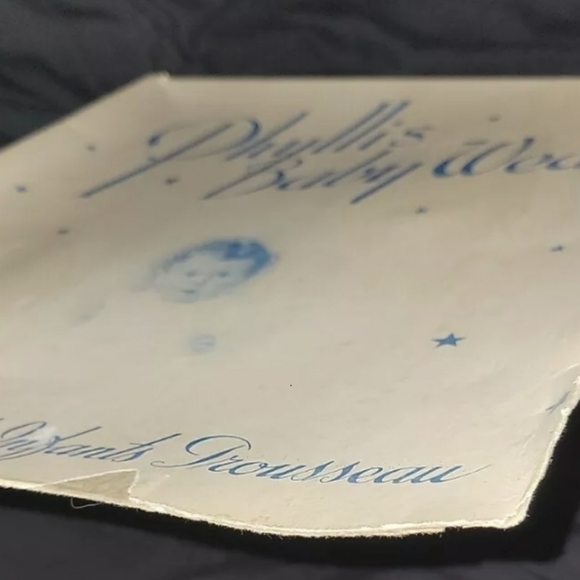 Phyllis
Baby
Infants Trousseau